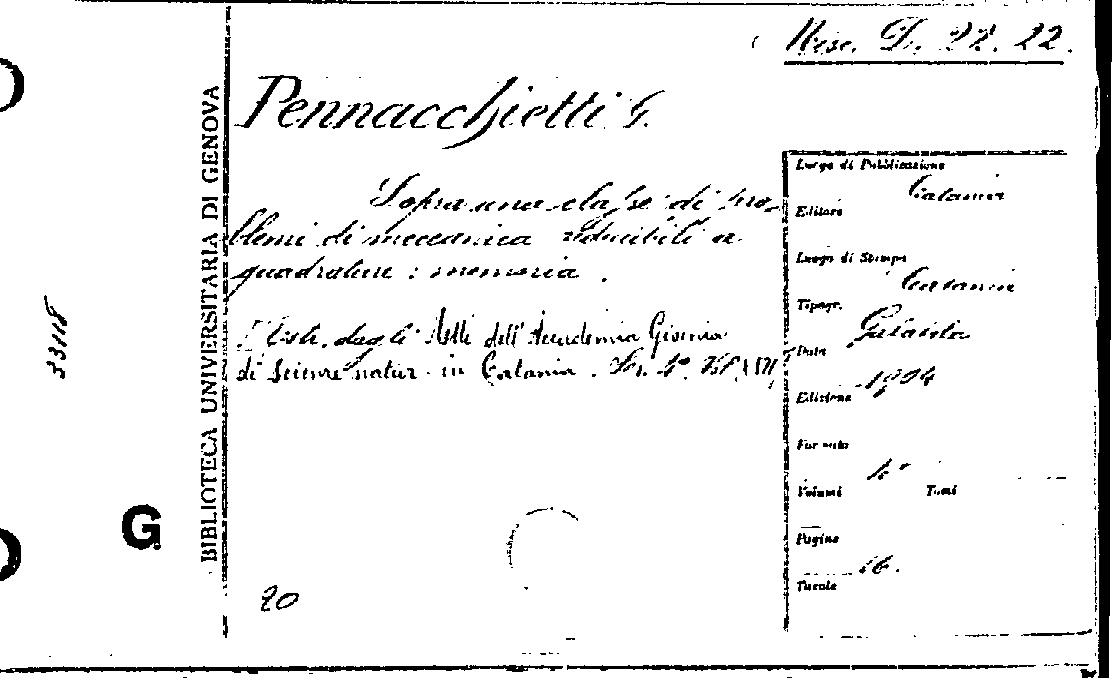 Misc. D. 22. 22.
Pennacchietti G.
Sopra una classe di pro-
blemi di meccanica riducibili a
quadrature : memoria .
Estr. dagli Atti dell'Accademia Gioenia
di Scienze natur. in Catania . Ser. 4ª. Vol. XVII
Luogo di Pubblicazione
Catania
Editore
Luogo di Stampa
Catania
Tipogr.
Galatola
Data
1904
Edizione
Formato
4°
Volumi Tomi
Pagine
16.
Tavole
20
BIBLIOTECA UNIVERSITARIA DI GENOVA
33118
G